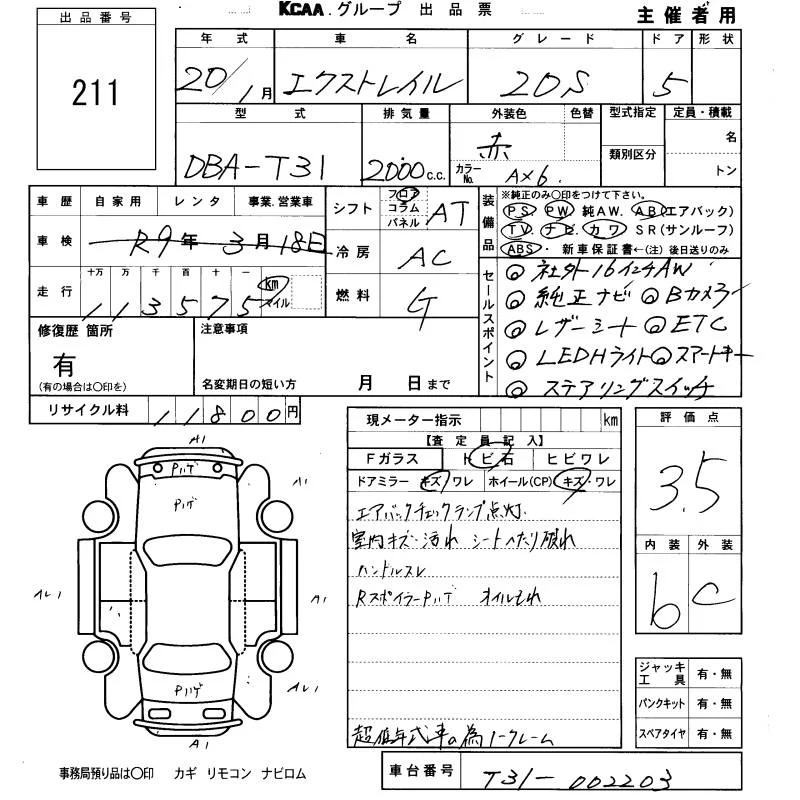 KCAA. グループ 出品票
主催者用
出品番号
211
年式 車名 グレード ドア 形状
20/1月 エクストレイル 20S 5
型式 排気量 外装色 色替 型式指定 定員・積載
DBA-T31 2000c.c. 赤 カラーNo. A×6. 類別区分 名
トン
車歴 自家用 レンタ 事業.営業車
車検 R9年3月18日
走行 十万 万 千 百 十 一
113575 km マイル
シフト フロア コラム パネル AT
冷房 AC
燃料 G
装備品
※純正のみ○印をつけて下さい。
PS PW 純AW. AB(エアバック)
TV ナビ. カワ SR(サンルーフ)
ABS・ 新車保証書←(注) 後日送りのみ
セールスポイント
◎ 社外16インチAW
◎ 純正ナビ ◎ Bカメラー
◎ レザーシート ◎ ETC
◎ LEDHライト ◎ スマートキー
◎ ステアリングスイッチ
修復歴 箇所
有
(有の場合は○印を)
注意事項
名変期日の短い方 月 日まで
リサイクル料 11800円
現メーター指示 km
【査定員記入】
Fガラス トビ石 ヒビワレ
ドアミラー キズ・ワレ ホイール(CP) キズ・ワレ
エアバックチェックランプ点灯.
室内キズ・汚れ シートへたり破れ
ハンドルスレ
RスポイラーPハゲ オイルもれ
超低年式車の為ノークレーム
評価点
3.5
内装 外装
b C
ジャッキ工具 有・無
パンクキット 有・無
スペアタイヤ 有・無
A1
Pハゲ
Pハゲ
A1
Pハゲ
A1
事務局預り品は○印 カギ リモコン ナビロム
車台番号 T31-002203